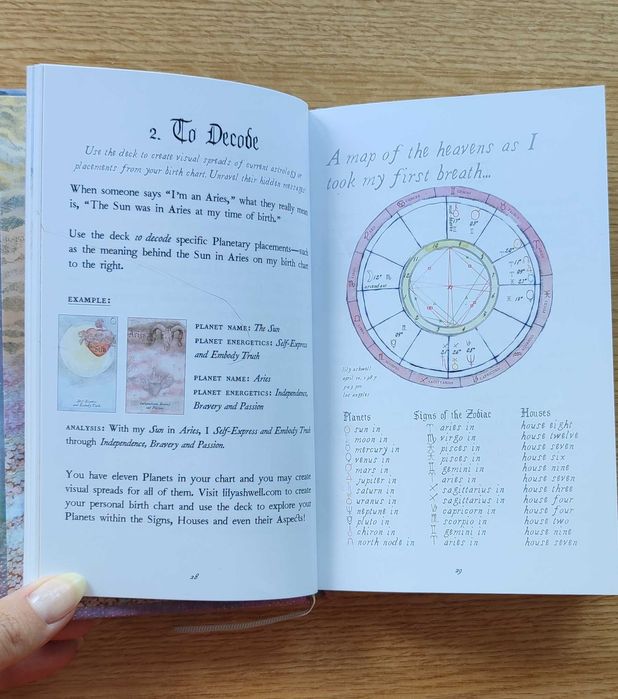 2. To Decode
Use the deck to create visual spreads of current astrology or
placements from your birth chart. Unravel their hidden messages!
When someone says “I’m an Aries,” what they really mean
is, “The Sun was in Aries at my time of birth.”
Use the deck to decode specific Planetary placements—such
as the meaning behind the Sun in Aries on my birth chart
to the right.
EXAMPLE:
Self-Express
and Embody Truth
Aries
Independence, Bravery
and Passion
PLANET NAME: The Sun
PLANET ENERGETICS: Self-Express
and Embody Truth
PLANET NAME: Aries
PLANET ENERGETICS: Independence,
Bravery and Passion
ANALYSIS: With my Sun in Aries, I Self-Express and Embody Truth
through Independence, Bravery and Passion.
You have eleven Planets in your chart and you may create
visual spreads for all of them. Visit lilyashwell.com to create
your personal birth chart and use the deck to explore your
Planets within the Signs, Houses and even their Aspects!
28
A map of the heavens as I
took my first breath...
lily ashwell
los angeles
Planets Signs of the Zodiac Houses
sun in aries in house eight
moon in virgo in house twelve
mercury in pisces in house seven
venus in pisces in house six
mars in gemini in house nine
jupiter in aries in house seven
saturn in sagittarius in house three
uranus in sagittarius in house four
neptune in capricorn in house four
pluto in scorpio in house two
chiron in gemini in house nine
north node in aries in house seven
29